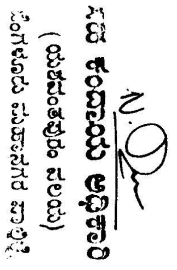 ಸಹ ಕಂದಾಯ ಅಧಿಕಾರಿ
(ಯಶವಂತಪುರಂ ವಲಯ)
ಬೆಂಗಳೂರು ಮಹಾನಗರ ಪಾಲಿಕೆ